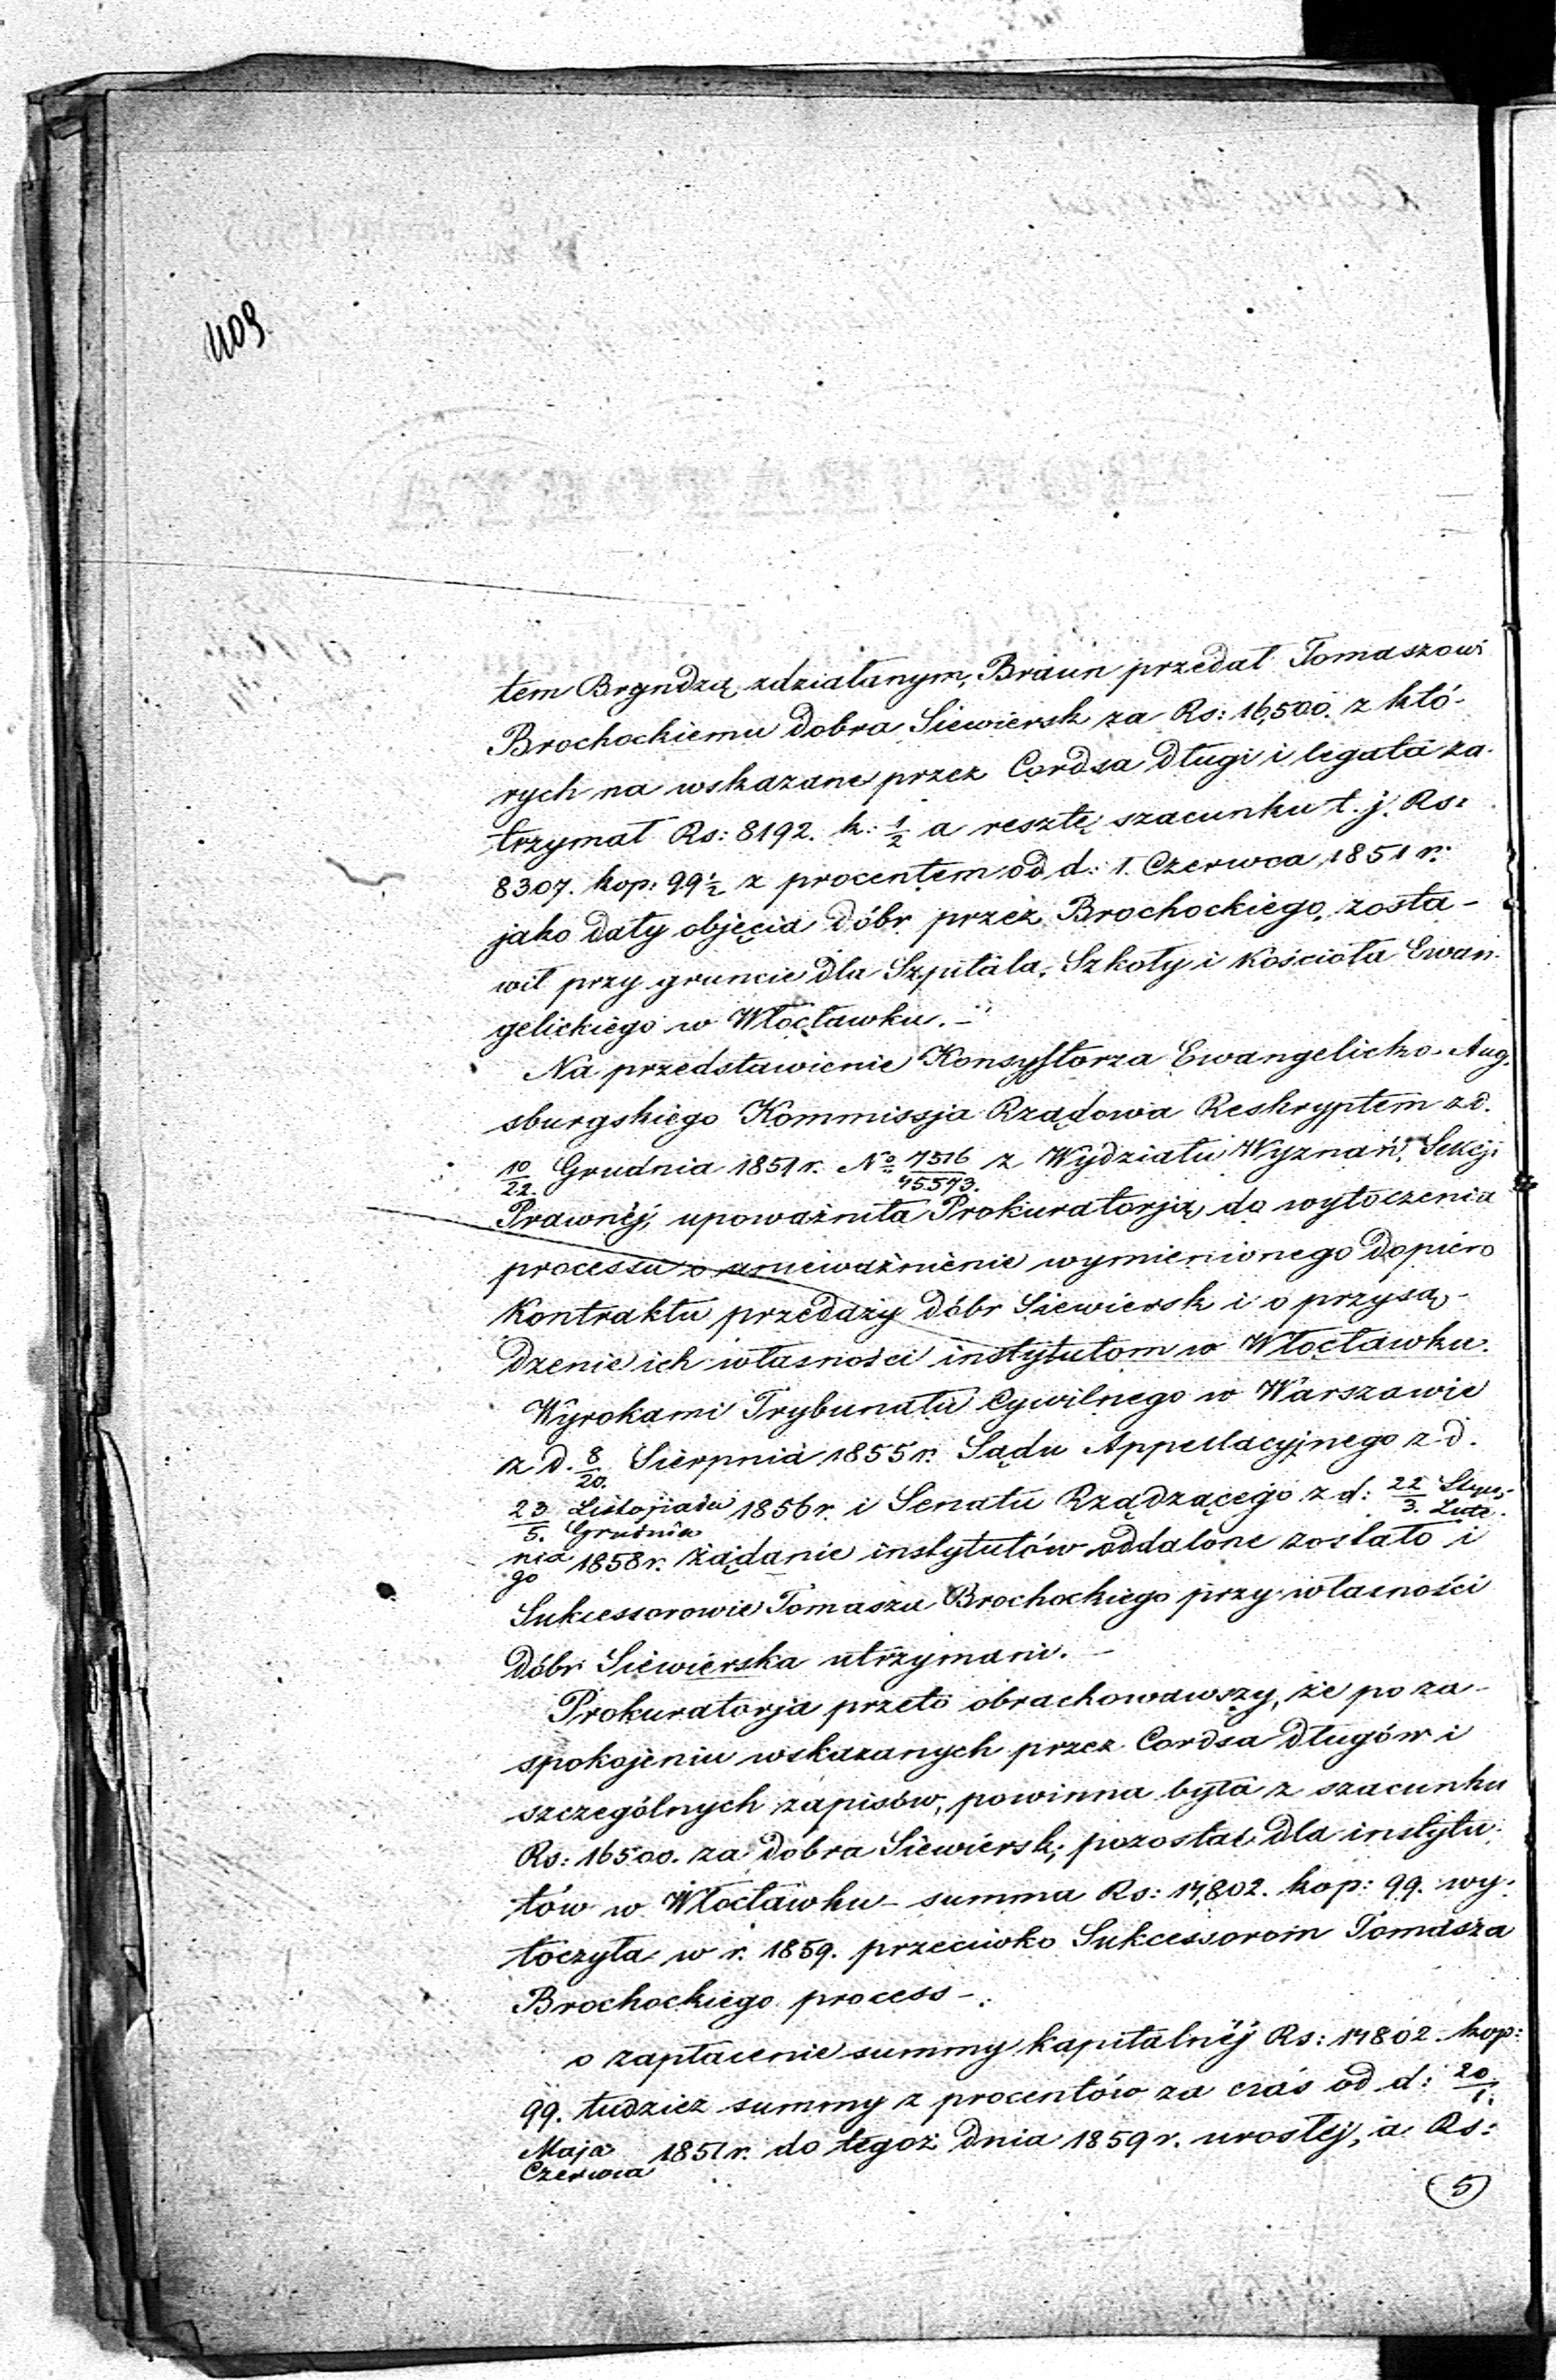 409
tem Bryndzą zdziałanym, Braun przedał Tomaszowi
Brochockiemu dobra Siewiersk za Rs: 16,500. z któ-
rych na wskazane przez Cordsa długi i legata za-
trzymał Rs: 8192. k: 1/2 a resztę szacunku t. j. Rs:
8307. kop: 99 1/2 z procentem od d: 1. Czerwca 1851 r:
jako daty objęcia dóbr przez Brochockiego, zosta-
wił przy gruncie dla Szpitala, Szkoły i Kościoła Ewan-
gelickiego w Włocławku. –
Na przedstawienie Konsystorza Ewangelicko-Aug-
sburgskiego Kommissja Rządowa Reskryptem z d.
10/22. Grudnia 1851 r. No 7516/45573. z Wydziału Wyznań, Sekcji
Prawnéj, upoważniła Prokuratorją do wytoczenia
processu o unieważnienie wymienionego dopiero
Kontraktu przedaży dóbr Siewiersk i o przysą-
dzenie ich własności instytutom w Włocławku.
Wyrokami Trybunału Cywilnego w Warszawie
z d. 8/20. Sierpnia 1855 r. Sądu Appellacyjnego z d.
23/5. Listopada/Grudnia 1856 r. i Senatu Rządzącego z d: 22/3. Stycz-/Lute-
nia/go 1858 r. żądanie instytutów oddalone zostało i
Sukcessorowie Tomasza Brochockiego przy własności
dóbr Siewierska utrzymani. –
Prokuratorja przeto obrachowawszy, że po za-
spokojeniu wskazanych przez Cordsa długów i
szczególnych zapisów, powinna była z szacunku
Rs: 16500. za dobra Siewiersk, pozostać dla instytu-
tów w Włocławku – summa Rs: 14,802. kop: 99. wy-
toczyła w r. 1859. przeciwko Sukcessorom Tomasza
Brochockiego process –
o zapłacenie summy kapitalnéj Rs: 14802. kop:
99. tudzież summy z procentów za czas od d: 20/1.
Maja/Czerwca 1851 r. do tegoż dnia 1859 r. urosłej, a Rs:
5